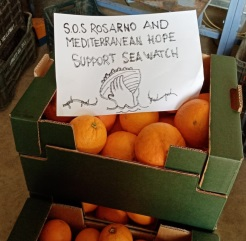 S.O.S ROSARNO AND
MEDITERRANEAN HOPE
SUPPORT SEA WATCH